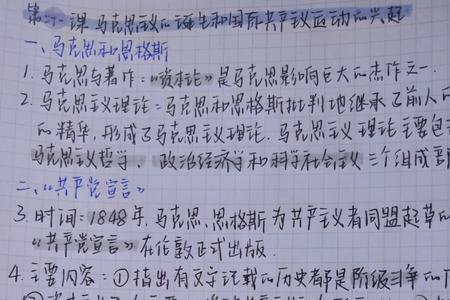 第二十一课 马克思主义的诞生和国际共产主义运动的兴起
一、马克思和恩格斯
1. 马克思与著作：《资本论》是马克思影响巨大的杰作之一.
2. 马克思主义理论：马克思和恩格斯批判地继承了前人的
的精华，形成了马克思主义理论. 马克思主义理论主要包
马克思主义哲学、政治经济学和科学社会主义三个组成部
二、《共产党宣言》
3. 时间：1848年，马克思、恩格斯为共产主义者同盟起草的
《共产党宣言》在伦敦正式出版.
4. 主要内容：①指出有文字记载的历史都是阶级斗争的